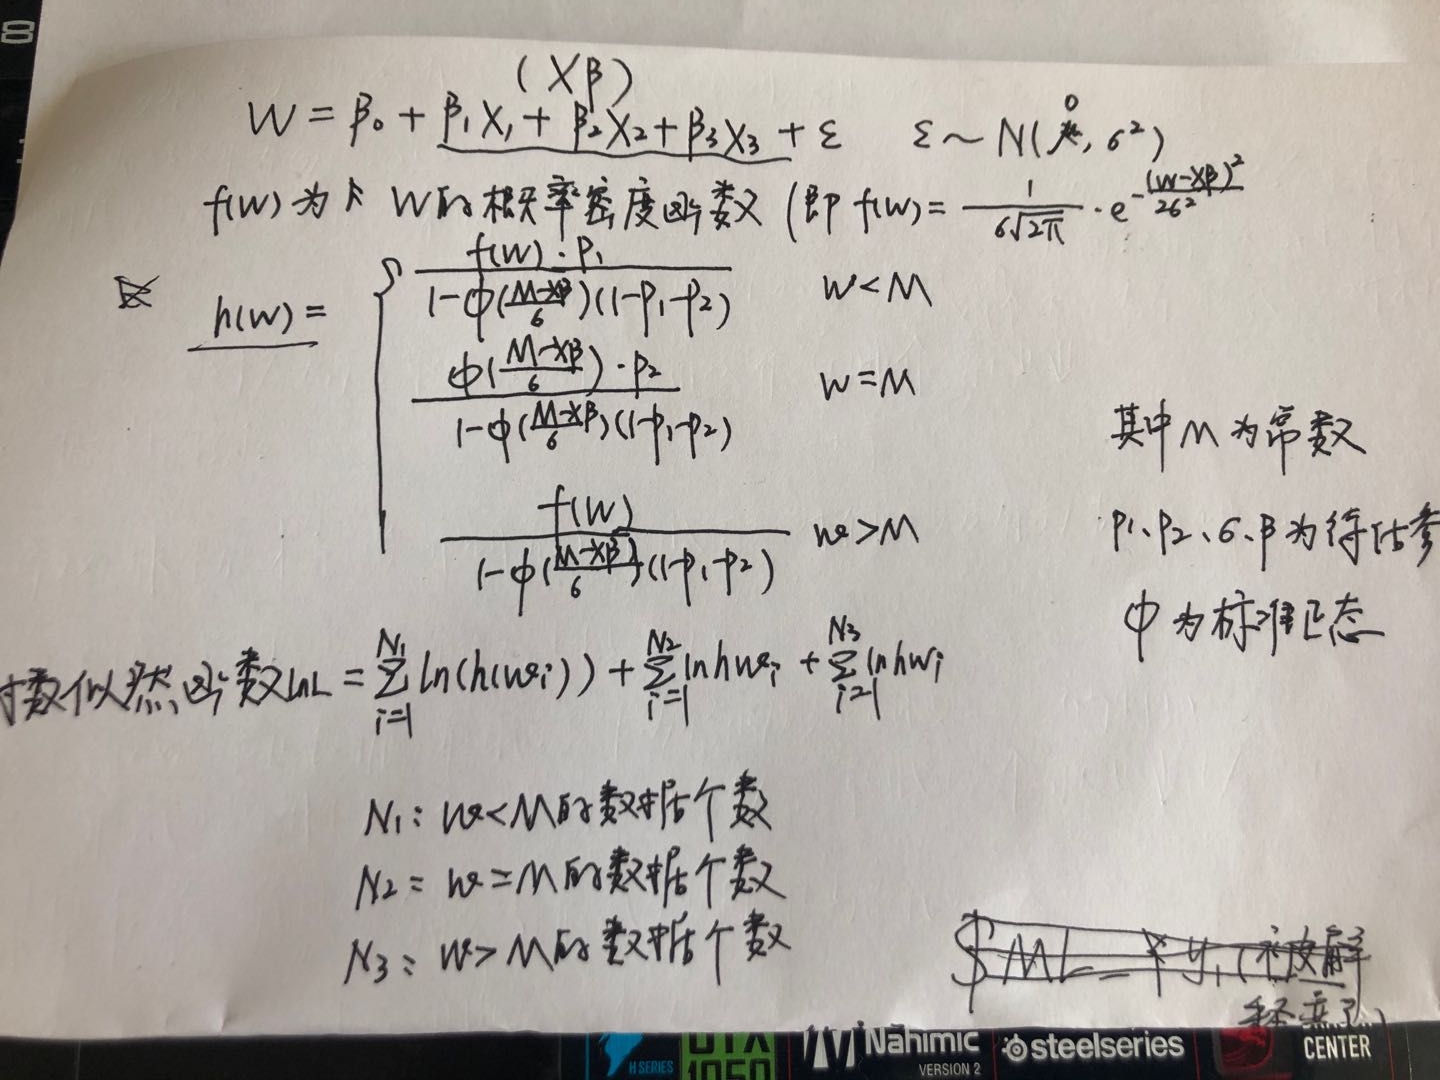 (Xβ)
W = β₀ + β₁X₁ + β₂X₂ + β₃X₃ + ε   ε ~ N(0, 6²)
f(w) 为 W的概率密度函数 (即 f(w) = 1/(6√2π) · e^(-(W-Xβ)²/26²)
h(w) =
f(w)·P₁ / 1-φ((M-Xβ)/6)(1-P₁-P₂)   w<M
φ((M-Xβ)/6)·P₂ / 1-φ((M-Xβ)/6)(1-P₁-P₂)   w=M
f(w) / 1-φ((M-Xβ)/6)(1-P₁-P₂)   w>M
其中M为常数
P1、P2、6、β为待估参
φ为标准正态
数似然函数lnL = Σ_{i=1}^{N₁} ln(h(wi)) + Σ_{i=1}^{N₂} lnhwi + Σ_{i=1}^{N₃} lnhwi
N₁: w<M的数据个数
N₂: w=M的数据个数
N₃: w>M的数据个数
H SERIES
GTX
1050
Nahimic
VERSION 2
steelseries
CENTER